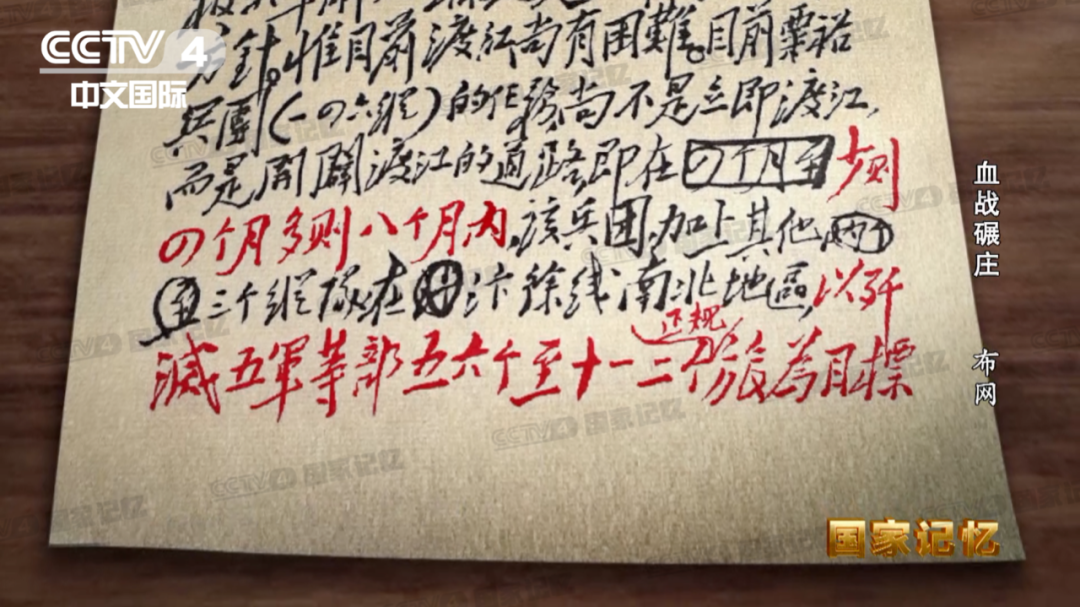 CCTV 4
中文国际
方針。惟目前渡江尚有困難。目前粟裕
兵團(一四六縱)的任務尚不是立即渡江,
而是開闢渡江的道路,即在四个月至少则
四个月多则八个月内,该兵团加上其他两个
至三个縱隊在汴徐线南北地區,以歼
滅五軍等部五六个至十一二个正规旅為目標
血战碾庄 布网
国家记忆